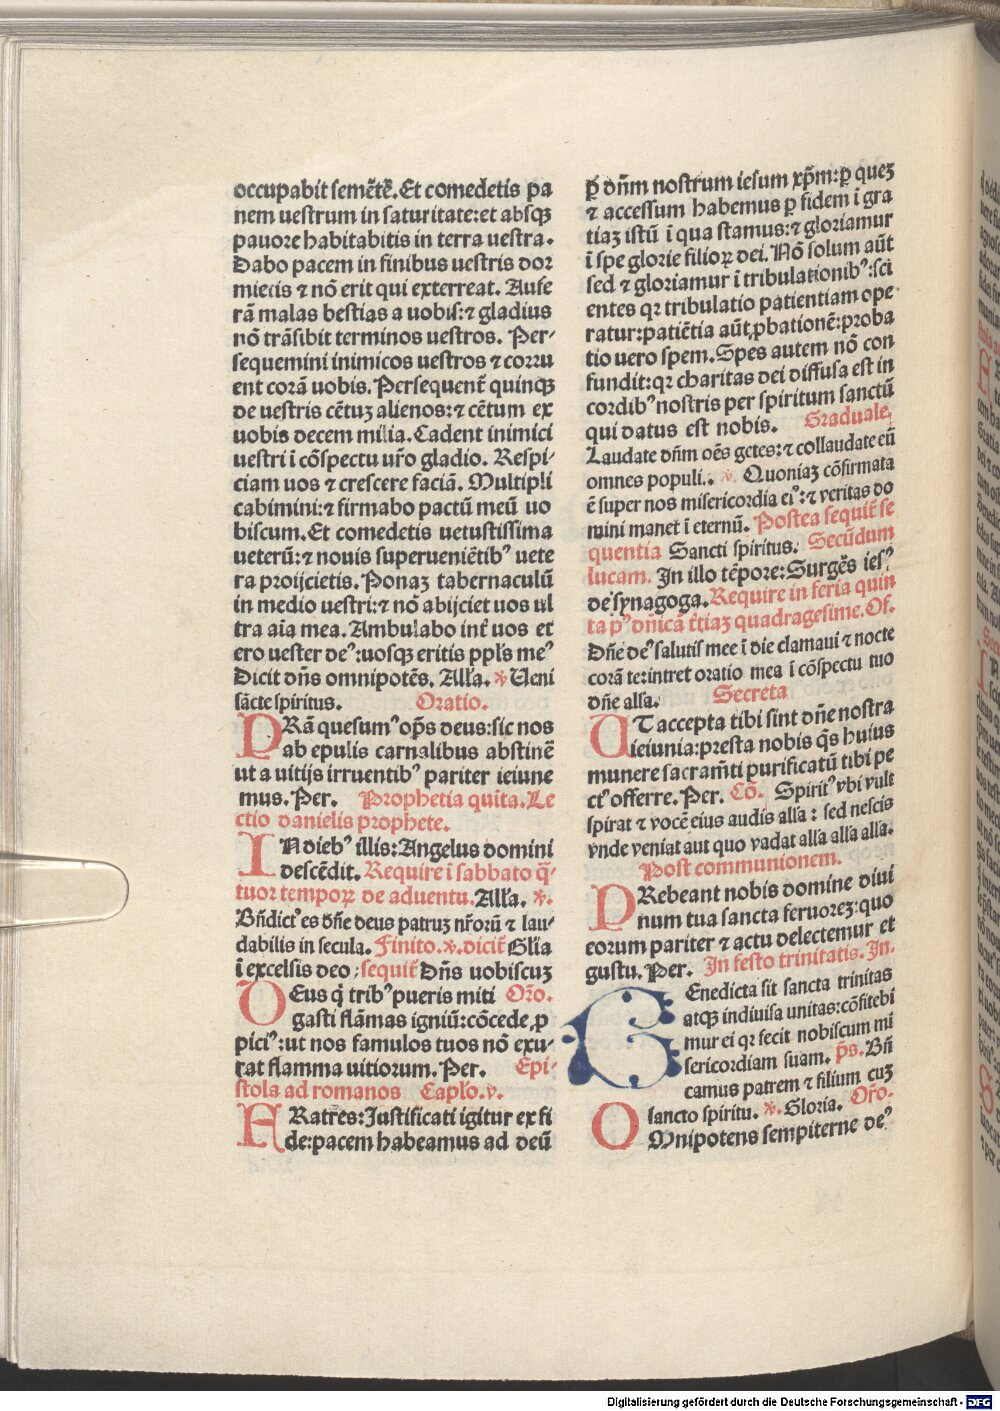 occupabit semẽtẽ. Et comedetis pa
nem uestrum in saturitate: et absqꝫ
pauore habitabitis in terra uestra.
Dabo pacem in finibus uestris dor
mietis ⁊ nõ erit qui exterreat. Aufe
rã malas bestias a uobis: ⁊ gladius
nõ trãsibit terminos uestros. Per-
sequemini inimicos uestros ⁊ corru
ent corã uobis. Persequent̃ quinqꝫ
de uestris cẽtuꝫ alienos: ⁊ cẽtum ex
uobis decem milia. Cadent inimici
uestri ĩ cõspectu ur̃o gladio. Respi-
ciam uos ⁊ crescere faciã. Multipli
cabimini: ⁊ firmabo pactũ meũ uo
biscum. Et comedetis uetustissima
ueterũ: ⁊ nouis superueniẽtibꝰ uete
ra proijcietis. Ponaꝫ tabernaculũ
in medio uestri: ⁊ nõ abijciet uos ul
tra aĩa mea. Ambulabo int̃ uos et
ero uester deꝰ: uosqꝫ eritis ppl̃s meꝰ
Dicit dñs omnipotẽs. All̃a. ℣ Ueni
sãcte spiritus. Oratio.
PRã quesumꝰ op̃s deus: sic nos
ab epulis carnalibus abstinẽ
ut a uitijs irruentibꝰ pariter ieiune
mus. Per. Prophetia quĩta. Le
ctio danielis prophete.
IN diebꝰ illis: Angelus domini
descẽdit. Require ĩ sabbato q̃-
tuor temporꝝ de aduentu. All̃a. ℣.
Bñdictꝰ es dñe deus patruꝫ nr̃orũ ⁊ lau-
dabilis in secula. Finito. ℣. dicit̃ Gl̃ia
ĩ excelsis deo; sequit̃ Dñs uobiscuꝫ
DEus q̃ tribꝰ pueris miti Or̃o.
gasti flãmas igniũ: cõcede ꝓ
piciꝰ: ut nos famulos tuos nõ exu-
rat flamma uitiorum. Per. Epi-
stola ad romanos Capl̃o. v.
FRatres: Justificati igitur ex fi
de: pacem habeamus ad deũ
ꝑ dñm nostrum iesum xp̃m: ꝑ queꝫ
⁊ accessum habemus ꝑ fidem ĩ gra
tiaꝫ istũ ĩ qua stamus: ⁊ gloriamur
ĩ spe glorie filioꝝ dei. Nõ solum aũt
sed ⁊ gloriamur ĩ tribulationibꝰ: sci
entes qꝛ tribulatio patientiam ope
ratur: patiẽtia aũt ꝓbationẽ: proba
tio uero spem. Spes autem nõ con
fundit: qꝛ charitas dei diffusa est in
cordibꝰ nostris per spiritum sanctũ
qui datus est nobis. Graduale.
Laudate dñm oẽs gẽtes: ⁊ collaudate eũ
omnes populi.. ℣. Quoniaꝫ cõfirmata
ẽ super nos misericordia eiꝰ: ⁊ veritas do
mini manet ĩ eternũ. Postea sequit̃ se
quentia Sancti spiritus. Secũdum
lucam. In illo tẽpore: Surgẽs iesꝰ
de synagoga. Require in feria quin
ta pꝰ dñicã t̃tiaꝫ quadragesime. Of.
Dñe deꝰ salutis mee ĩ die clamaui ⁊ nocte
corã te: intret oratio mea ĩ cõspectu tuo
dñe all̃a. Secreta
UT accepta tibi sint dñe nostra
ieiunia: presta nobis q̃s huius
munere sacram̃ti purificatũ tibi pe
ctꝰ offerre. Per. Cõ. Spiritꝰ vbi vult
spirat ⁊ vocẽ eius audis all̃a: sed nescis
vnde veniat aut quo vadat all̃a all̃a all̃a.
Post communionem.
PRebeant nobis domine diui
num tua sancta feruoreꝫ: quo
eorum pariter ⁊ actu delectemur et
gustu. Per. In festo trinitatis. In.
BEnedicta sit sancta trinitas
atqꝫ indiuisa unitas: cõfitebi
mur ei qꝛ fecit nobiscum mi
sericordiam suam. p̃s. Bñ
camus patrem ⁊ filium cuꝫ
sancto spiritu. ℣. Gloria. Or̃o.
OMnipotens sempiterne deꝰ
Digitalisierung gefördert durch die Deutsche Forschungsgemeinschaft - DFG